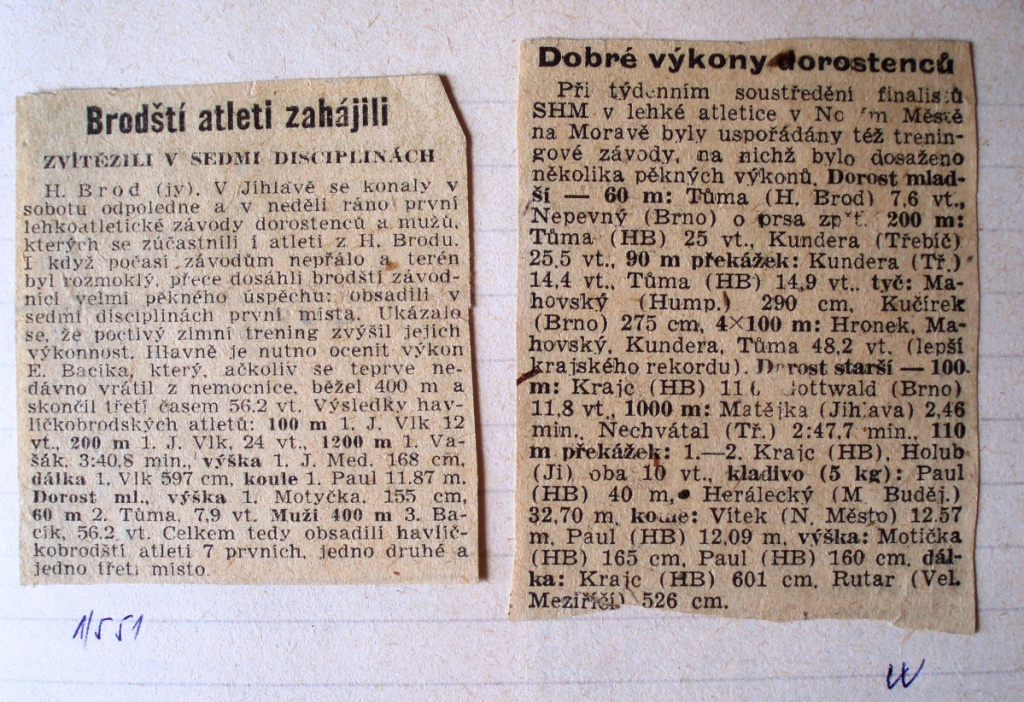 Brodští atleti zahájili
ZVÍTĚZILI V SEDMI DISCIPLINÁCH
H. Brod (jv). V Jihlavě se konaly v
sobotu odpoledne a v neděli ráno první
lehkoatletické závody dorostenců a mužů,
kterých se zúčastnili i atleti z H. Brodu.
I když počasí závodům nepřálo a terén
byl rozmoklý, přece dosáhli brodští závod-
níci velmi pěkného úspěchu: obsadili v
sedmi disciplinách první místa. Ukázalo
se, že poctivý zimní trening zvýšil jejich
výkonnost. Hlavně je nutno ocenit výkon
E. Bacíka, který, ačkoliv se teprve ne-
dávno vrátil z nemocnice, běžel 400 m a
skončil třetí časem 56.2 vt. Výsledky hav-
líčkobrodských atletů: 100 m 1. J. Vlk 12
vt., 200 m 1. J. Vlk, 24 vt., 1200 m 1. Va-
šák, 3:40.8 min., výška 1. J. Med, 168 cm,
dálka 1. Vlk 597 cm, koule 1. Paul 11.87 m.
Dorost ml., výška 1. Motyčka, 155 cm,
60 m 2. Tůma, 7,9 vt. Muži 400 m 3. Ba-
cík, 56.2 vt. Celkem tedy obsadili havlíč-
kobrodští atleti 7 prvních, jedno druhé a
jedno třetí místo.
1/5 51
Dobré výkony dorostenců
Při týdenním soustředění finalistů
SHM v lehké atletice v Novém Městě
na Moravě byly uspořádány též trenin-
gové závody, na nichž bylo dosaženo
několika pěkných výkonů. Dorost mlad-
ší — 60 m: Tůma (H. Brod) 7,6 vt.,
Nepevný (Brno) o prsa zpět. 200 m:
Tůma (HB) 25 vt., Kundera (Třebíč)
25,5 vt., 90 m překážek: Kundera (Tř.)
14,4 vt., Tůma (HB) 14,9 vt., tyč: Ma-
hovský (Hump.) 290 cm, Kučírek
(Brno) 275 cm, 4×100 m: Hronek, Ma-
hovský, Kundera, Tůma 48,2 vt. (lepší
krajského rekordu). Dorost starší — 100
m: Krajc (HB) 11,6, Gottwald (Brno)
11,8 vt., 1000 m: Matějka (Jihlava) 2,46
min., Nechvátal (Tř.) 2:47,7 min., 110
m překážek: 1.—2. Krajc (HB), Holub
(Ji) oba 10 vt., kladivo (5 kg): Paul
(HB) 40 m, Herálecký (M. Buděj.)
32,70 m, koule: Vítek (N. Město) 12,57
m, Paul (HB) 12,09 m, výška: Motička
(HB) 165 cm, Paul (HB) 160 cm, dál-
ka: Krajc (HB) 601 cm, Rutar (Vel.
Meziříčí) 526 cm.